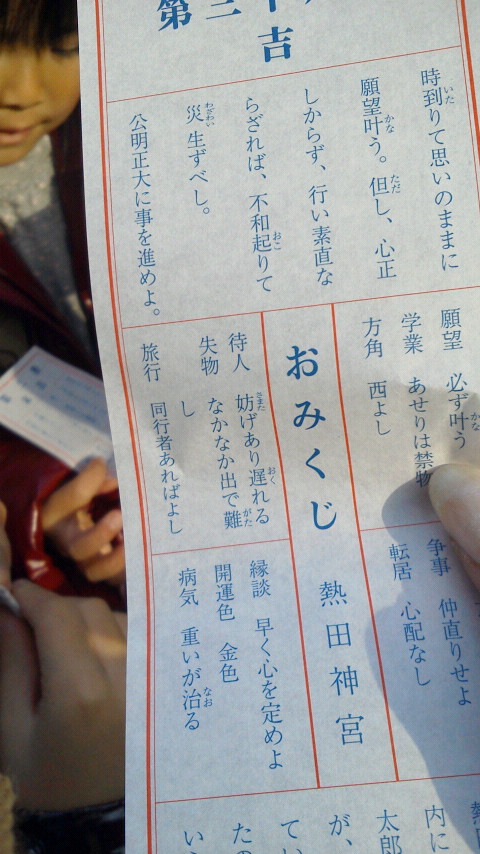 第三十
吉
時到りて思いのままに
願望叶う。但し、心正
しからず、行い素直な
らざれば、不和起りて
災生ずべし。
公明正大に事を進めよ。
願望 必ず叶う
学業 あせりは禁物
方角 西よし
争事 仲直りせよ
転居 心配なし
おみくじ 熱田神宮
待人 妨げあり遅れる
失物 なかなか出で難
し
旅行 同行者あればよし
縁談 早く心を定めよ
開運色 金色
病気 重いが治る
内に
太郎
が、
てい
たの